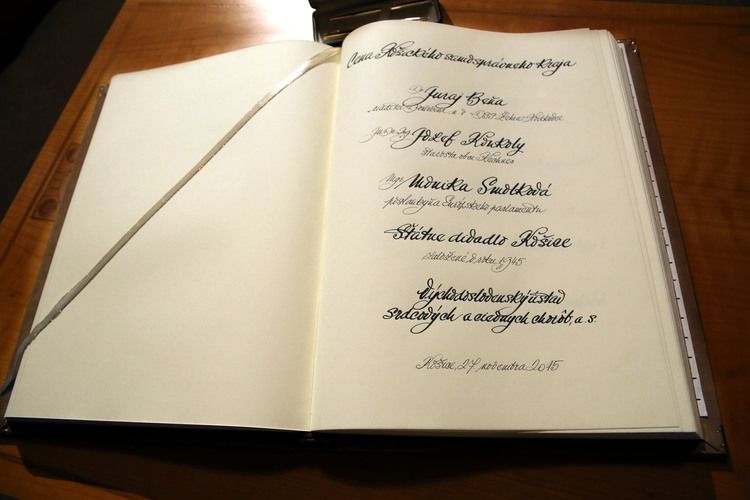 Cena Košického samosprávneho kraja
Juraj Beňa
Jozef Konkoly
starosta obce
Mgr. Monika Smolková
poslankyňa Európskeho parlamentu
Štátne divadlo Košice
založené v roku 1945
Východoslovenský ústav
srdcových a cievnych chorôb, a. s.
Košice, 27. novembra 2015